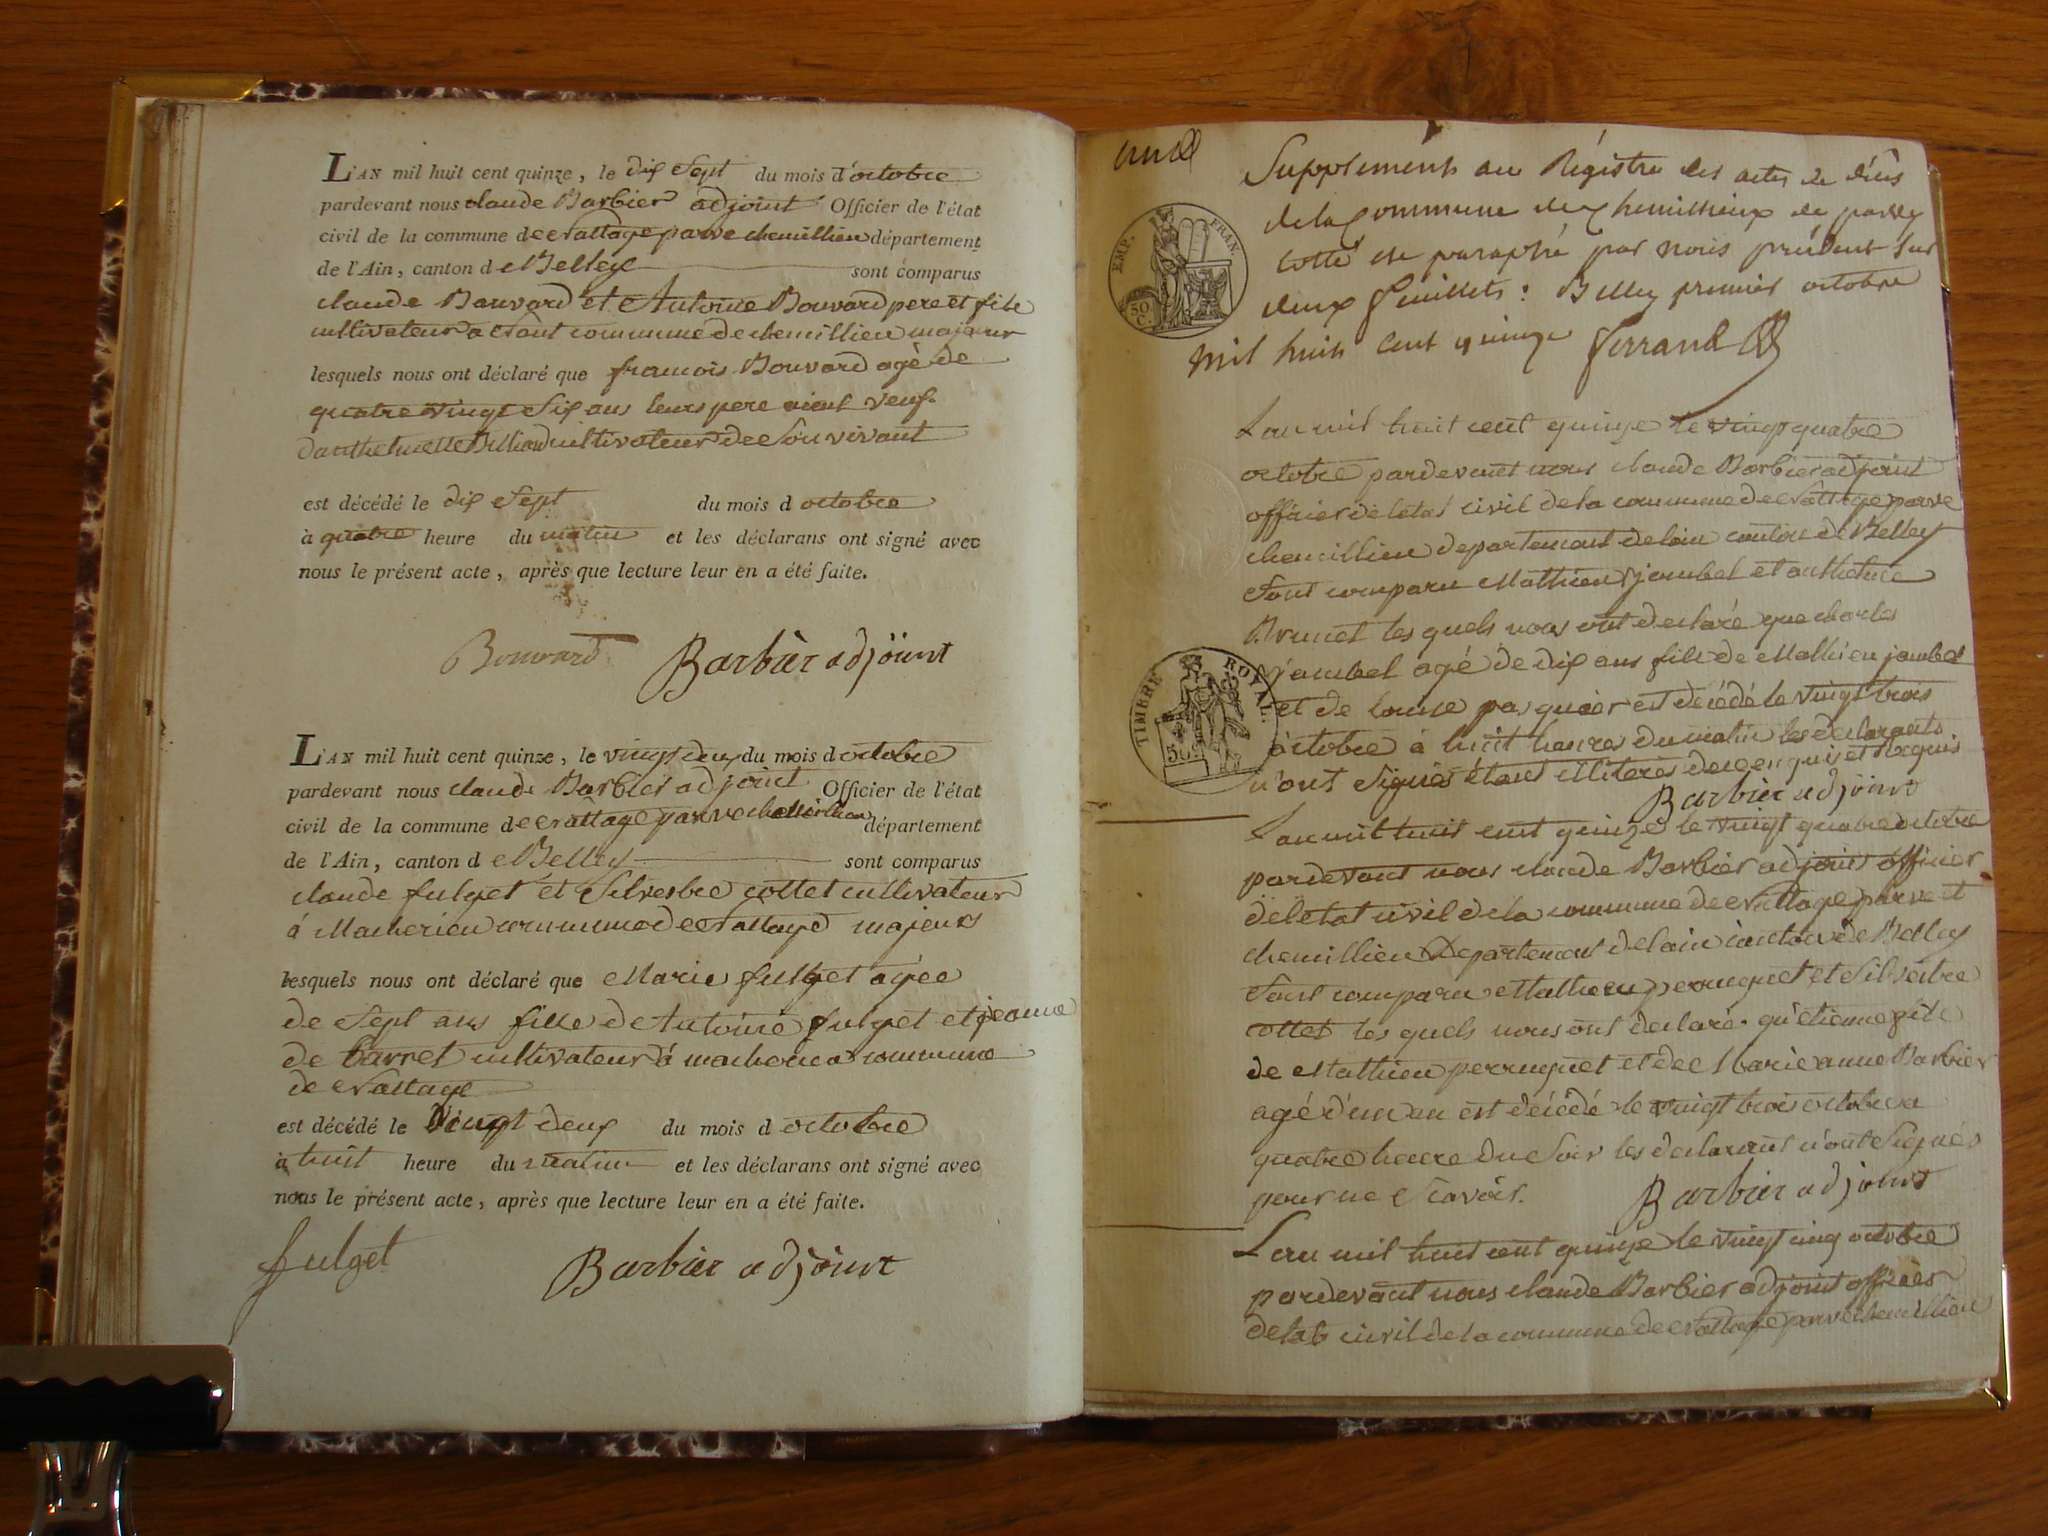 L'AN mil huit cent quinze, le dix Sept du mois d'octobre
pardevant nous claude Barbier adjoint Officier de l'état
civil de la commune de crattage parve chemillieu département
de l'Ain, canton d e Belley sont comparus
claude Bouvard et Antoine Bouvard pere et fils
cultivateur a commune de chemillieu majeur
lesquels nous ont déclaré que francois Bouvard agé de
quatre vingt Six ans leurs pere vieut veuf
cultivateur de Son vivant
est décédé le dix Sept du mois d octobre
à quatre heure du matin et les déclarans ont signé avec
nous le présent acte, après que lecture leur en a été faite.
Bouvard Barbier adjoint
L'AN mil huit cent quinze, le vingt deux du mois d octobre
pardevant nous claude Barbier adjoint Officier de l'état
civil de la commune de crattage parve chemillieu département
de l'Ain, canton d e Belley sont comparus
claude fulget et Silvestre cottet cultivateur
à Macherieu commune de crattage majeurs
lesquels nous ont déclaré que Marie fulget agée
de Sept ans fille de Antoine fulget et jeanne
de barret cultivateur à macherieu commune
de crattage
est décédé le Vingt deux du mois d octobre
à huit heure du matin et les déclarans ont signé avec
nous le présent acte, après que lecture leur en a été faite.
fulget Barbier adjoint
Supplément au Régistre des actes de décès
de la Commune de Chemillieux de parvey
cotté et paraphé par nous président sur
deux feuillets: Belley premier octobre
mil huit cent quinze ferrand
EMP. FRAN.
50 C.
L'an mil huit cent quinze le vingt quatre
octobre pardevant nous claude Barbier adjoint
officier de letat civil de la commune de crattage parve
chemillieu departement de lain canton de Belley
Sont comparu Mathieu jambel et anthelme
Brunet les quels nous ont declaré que charles
jambel agé de dix ans fils de Mathieu jambel
et de louise pasquier est décédé le vingt trois
octobre à huit heures du matin les declarants
n'ont Signés étant illiteres de ce enquis et requis
TIMBRE ROYAL
50
Barbier adjoint
L'an mil huit cent quinze le vingt quatre octobre
pardevant nous claude Barbier adjoint officier
de letat civil de la commune de crattage parve et
chemillieu Departement de lain canton de Belley
Sont comparu Mathieu perruquet et Silvestre
cottet les quels nous ont declaré qu'étienne fils
de Mathieu perruquet et de Marie anne Barbier
agé d'un an est décédé le vingt trois octobre a
quatre heure du Soir les declarant n'ont Signés
pour ne Scavoir. Barbier adjoint
L'an mil huit cent quinze le vingt cinq octobre
pardevant nous claude Barbier adjoint officier
de letat civil de la commune de crattage parve chemillieu